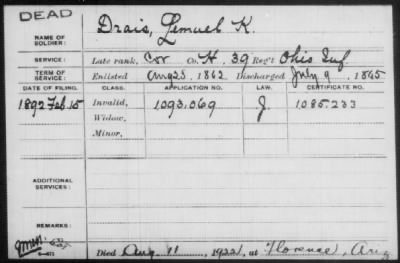 DEAD
NAME OF SOLDIER: Drais, Lemuel K.
SERVICE: Late rank, Cor Co. H, 39 Reg't Ohio Inf
TERM OF SERVICE: Enlisted Aug 23, 1862 Discharged July 9, 1865
DATE OF FILING. CLASS. APPLICATION NO. LAW. CERTIFICATE NO.
1892 Feb 15 Invalid, 1093,069 J. 1,085,233
Widow,
Minor,
ADDITIONAL SERVICES:
REMARKS:
Died Aug. 11, 1922, at Florence, Ariz